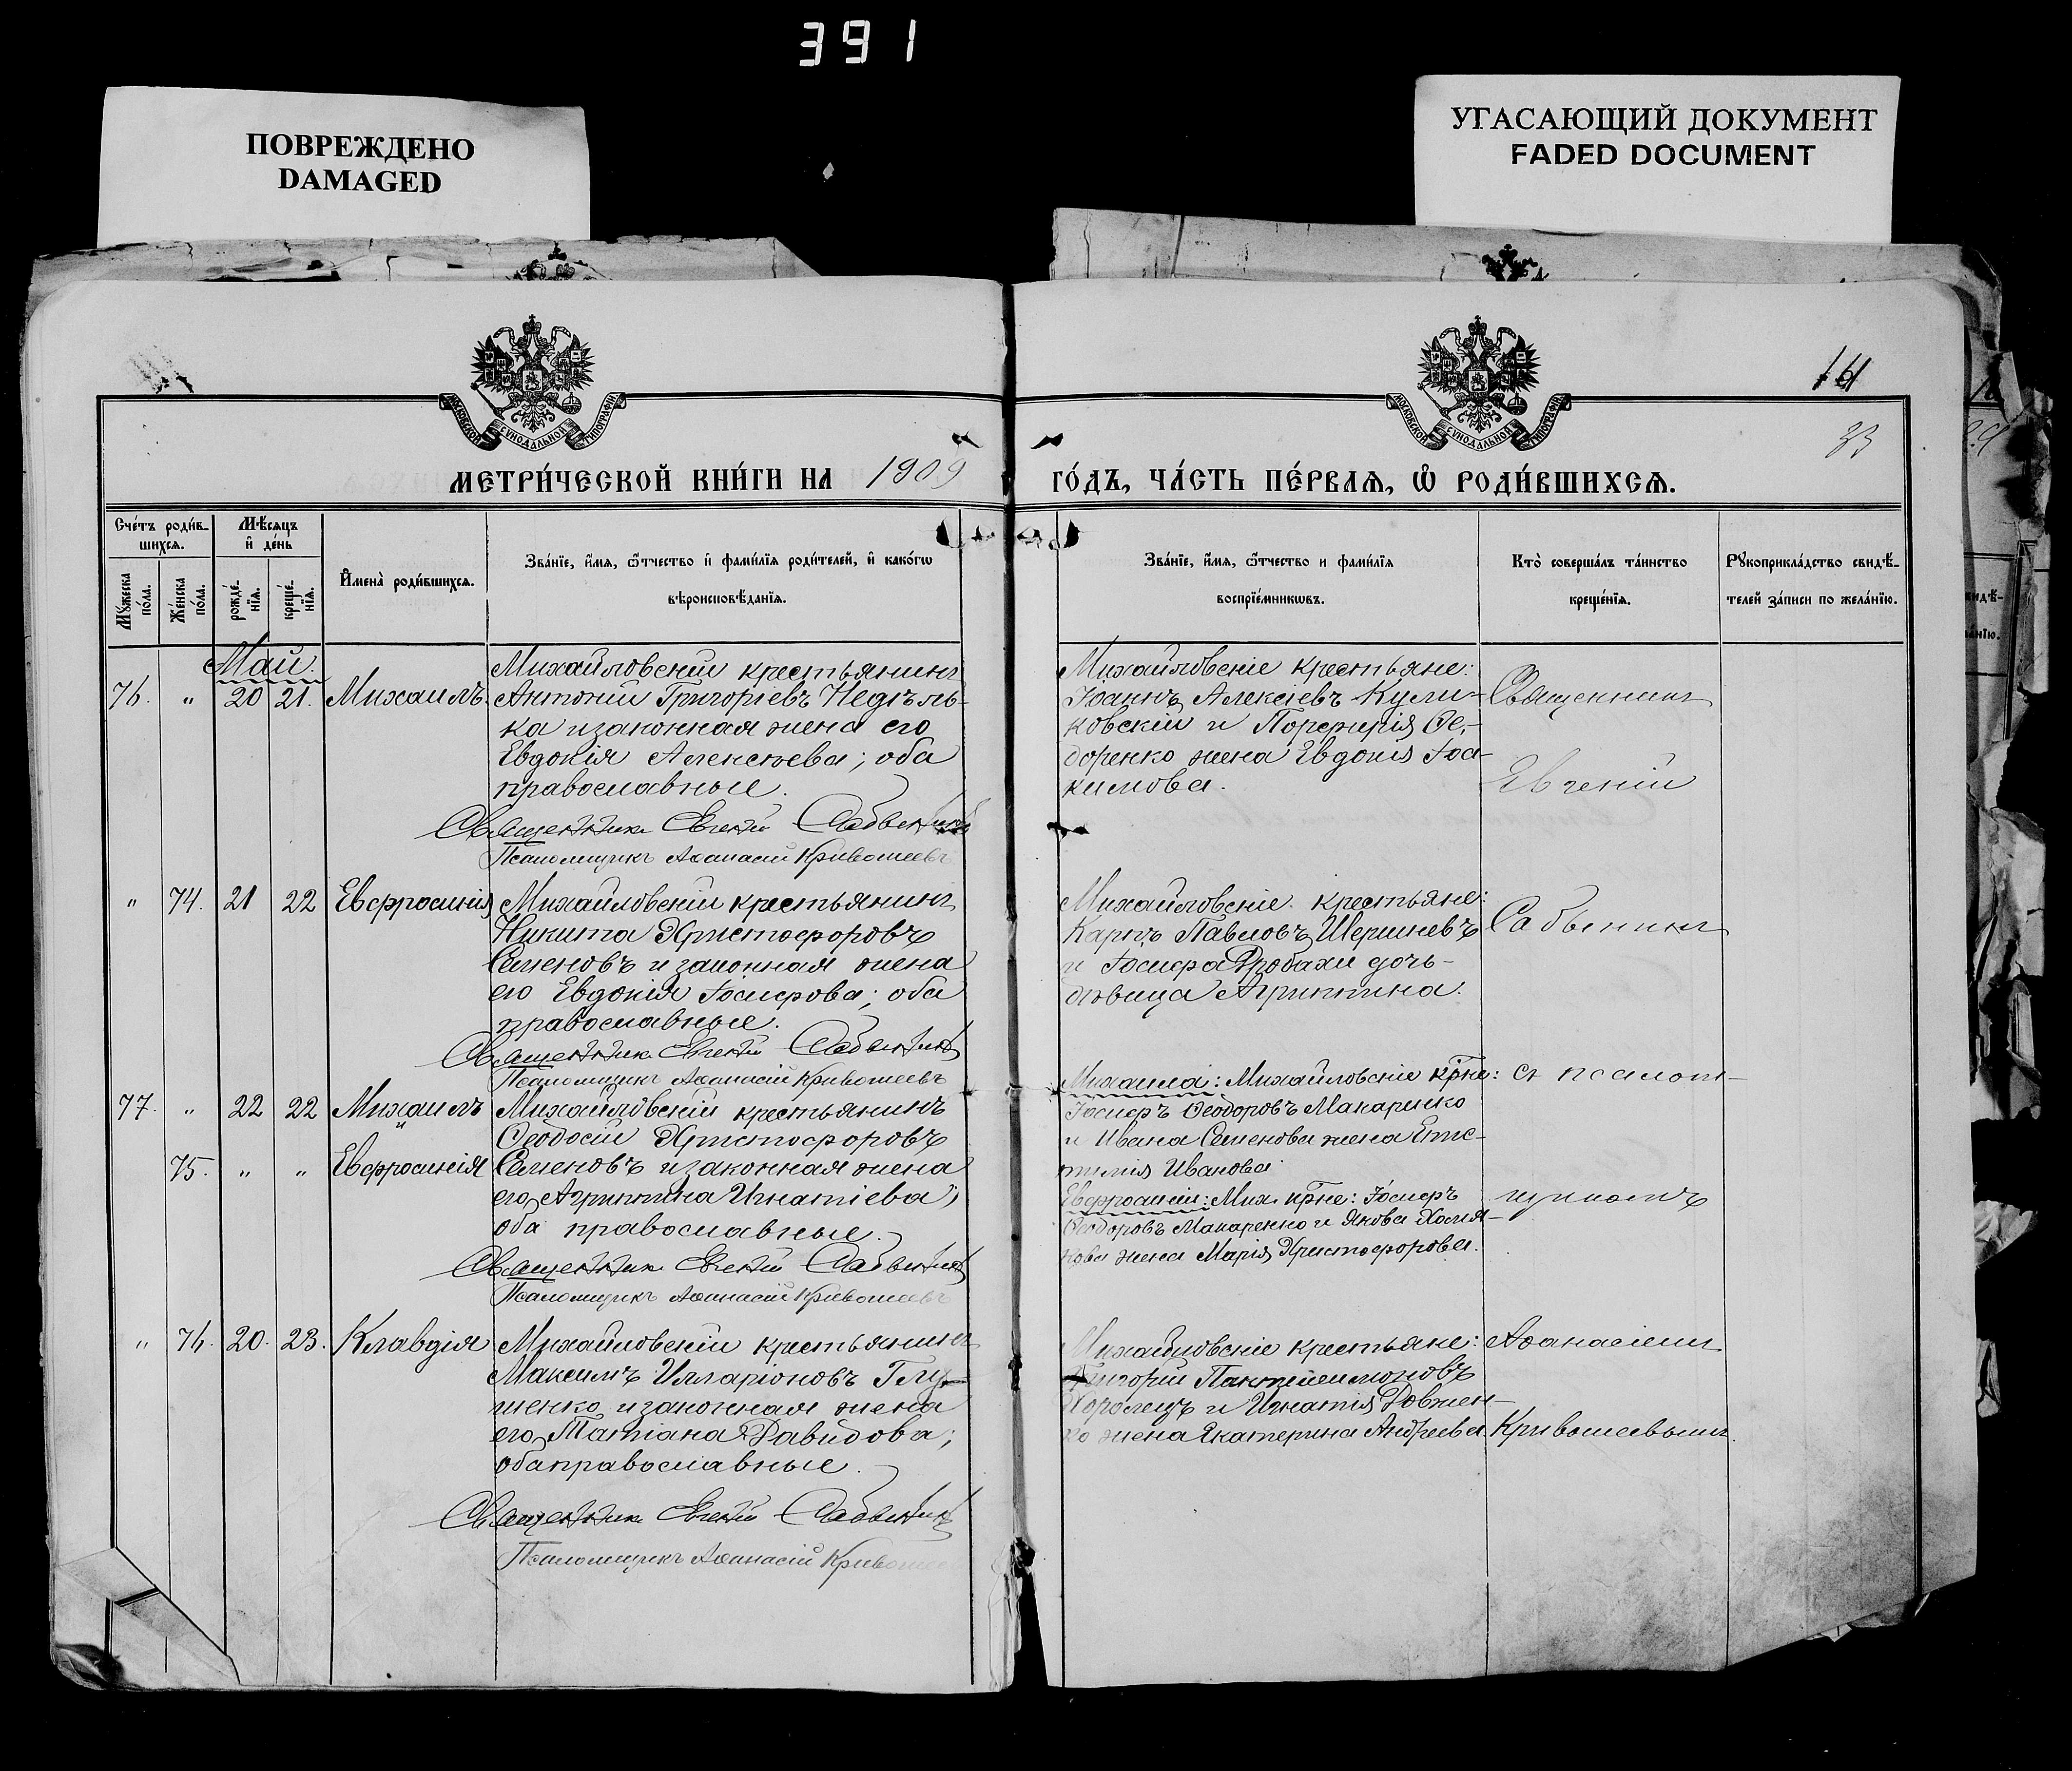 391
ПОВРЕЖДЕНО
DAMAGED
УГАСАЮЩИЙ ДОКУМЕНТ
FADED DOCUMENT
МОСКОВСКОЙ СѴНОДАЛЬНОЙ ТИПОГРАФІИ
МОСКОВСКОЙ СѴНОДАЛЬНОЙ ТИПОГРАФІИ
33
МЕТРИ́ЧЕСКОЙ КНИ́ГИ НА 1909
ГО́ДЪ, ЧА́СТЬ ПЕ́РВАѦ, Ѽ РОДИ́ВШИХСѦ.
Сче́тъ роди́в-
шихсѧ.
Мꙋжеска по́ла.
Же́нска по́ла.
Мѣ́сѧцъ
и҆ де́нь
рожде́-
нїѧ.
креще́-
нїѧ.
И҆мена̀ роди́вшихсѧ.
Зва́нїе, и҆́мѧ, ѻ҆́тчество и҆ фами́лїѧ роди́телей, и҆ како́гѡ
вѣроисповѣ́данїѧ.
Зва́нїе, и҆́мѧ, ѻ҆́тчество и фами́лїѧ
воспрїе́мникѡвъ.
Кто̀ соверша́лъ та́инство
креще́нїѧ.
Рꙋкоприкла́дство свидѣ́-
телей за́писи по жела́нїю.
Май.
76. " 20 21. Михаилъ
Михайловскій крестьянинъ
Антоній Григоріевъ Недѣль-
ка и законная жена его
Евдокія Алексѣева; оба
православные.
Священникъ Евгеній Сабынинъ
Псаломщикъ Аѳанасій Кривошеевъ
Михайловскіе крестьяне:
Іоаннъ Алексіевъ Кули-
ковскій и Порфирія Ѳе-
доренко жена Евдокія Іоа-
кимова.
Священникъ
Евгеній
" 74. 21 22 Евфросинія
Михайловскій крестьянинъ
Никита Христофоровъ
Семеновъ и законная жена
его Евдокія Іосифова; оба
православные.
Священникъ Евгеній Сабынинъ
Псаломщикъ Аѳанасій Кривошеевъ
Михайловскіе крестьяне:
Карпъ Павловъ Шершневъ
и Іосифа Дробахи дочь-
дѣвица Агриппина.
Сабынинъ
77. " 22 22 Михаилъ
и
75. " " Евфросинія
Михайловскій крестьянинъ
Ѳеодосій Христофоровъ
Семеновъ и законная жена
его Агриппина Игнатіева;
оба православные.
Священникъ Евгеній Сабынинъ
Псаломщикъ Аѳанасій Кривошеевъ
Михаила: Михайловскіе крне:
Іосифъ Ѳеодоровъ Макаренко
и Ивана Семенова жена Епис-
тимія Иванова
Евфросиніи: Мих. крне: Іосифъ
Ѳеодоровъ Макаренко и Якова Хомя-
кова жена Марія Христофорова.
съ псалом-
щикомъ
" 76. 20. 23. Клавдія
Михайловскій крестьянинъ
Максимъ Илларіоновъ Глу-
шенко и законная жена
его Татіана Давидова;
оба православные.
Священникъ Евгеній Сабынинъ
Псаломщикъ Аѳанасій Кривошее
Михайловскіе крестьяне:
Григорій Пантелеимоновъ
Королецъ и Игнатія Довжен-
ко жена Екатерина Андреева.
Аѳанасіемъ
Кривошеевымъ.